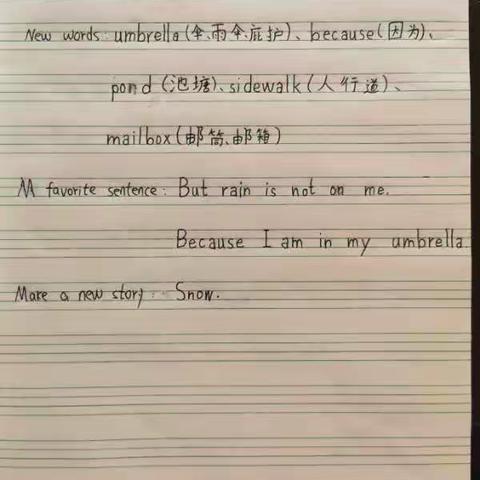 New words: umbrella(伞、雨伞、庇护)、because(因为)、
pond (池塘)、sidewalk(人行道)、
mailbox(邮筒、邮箱)
M favorite sentence: But rain is not on me.
Because I am in my umbrella.
Make a new story: Snow.